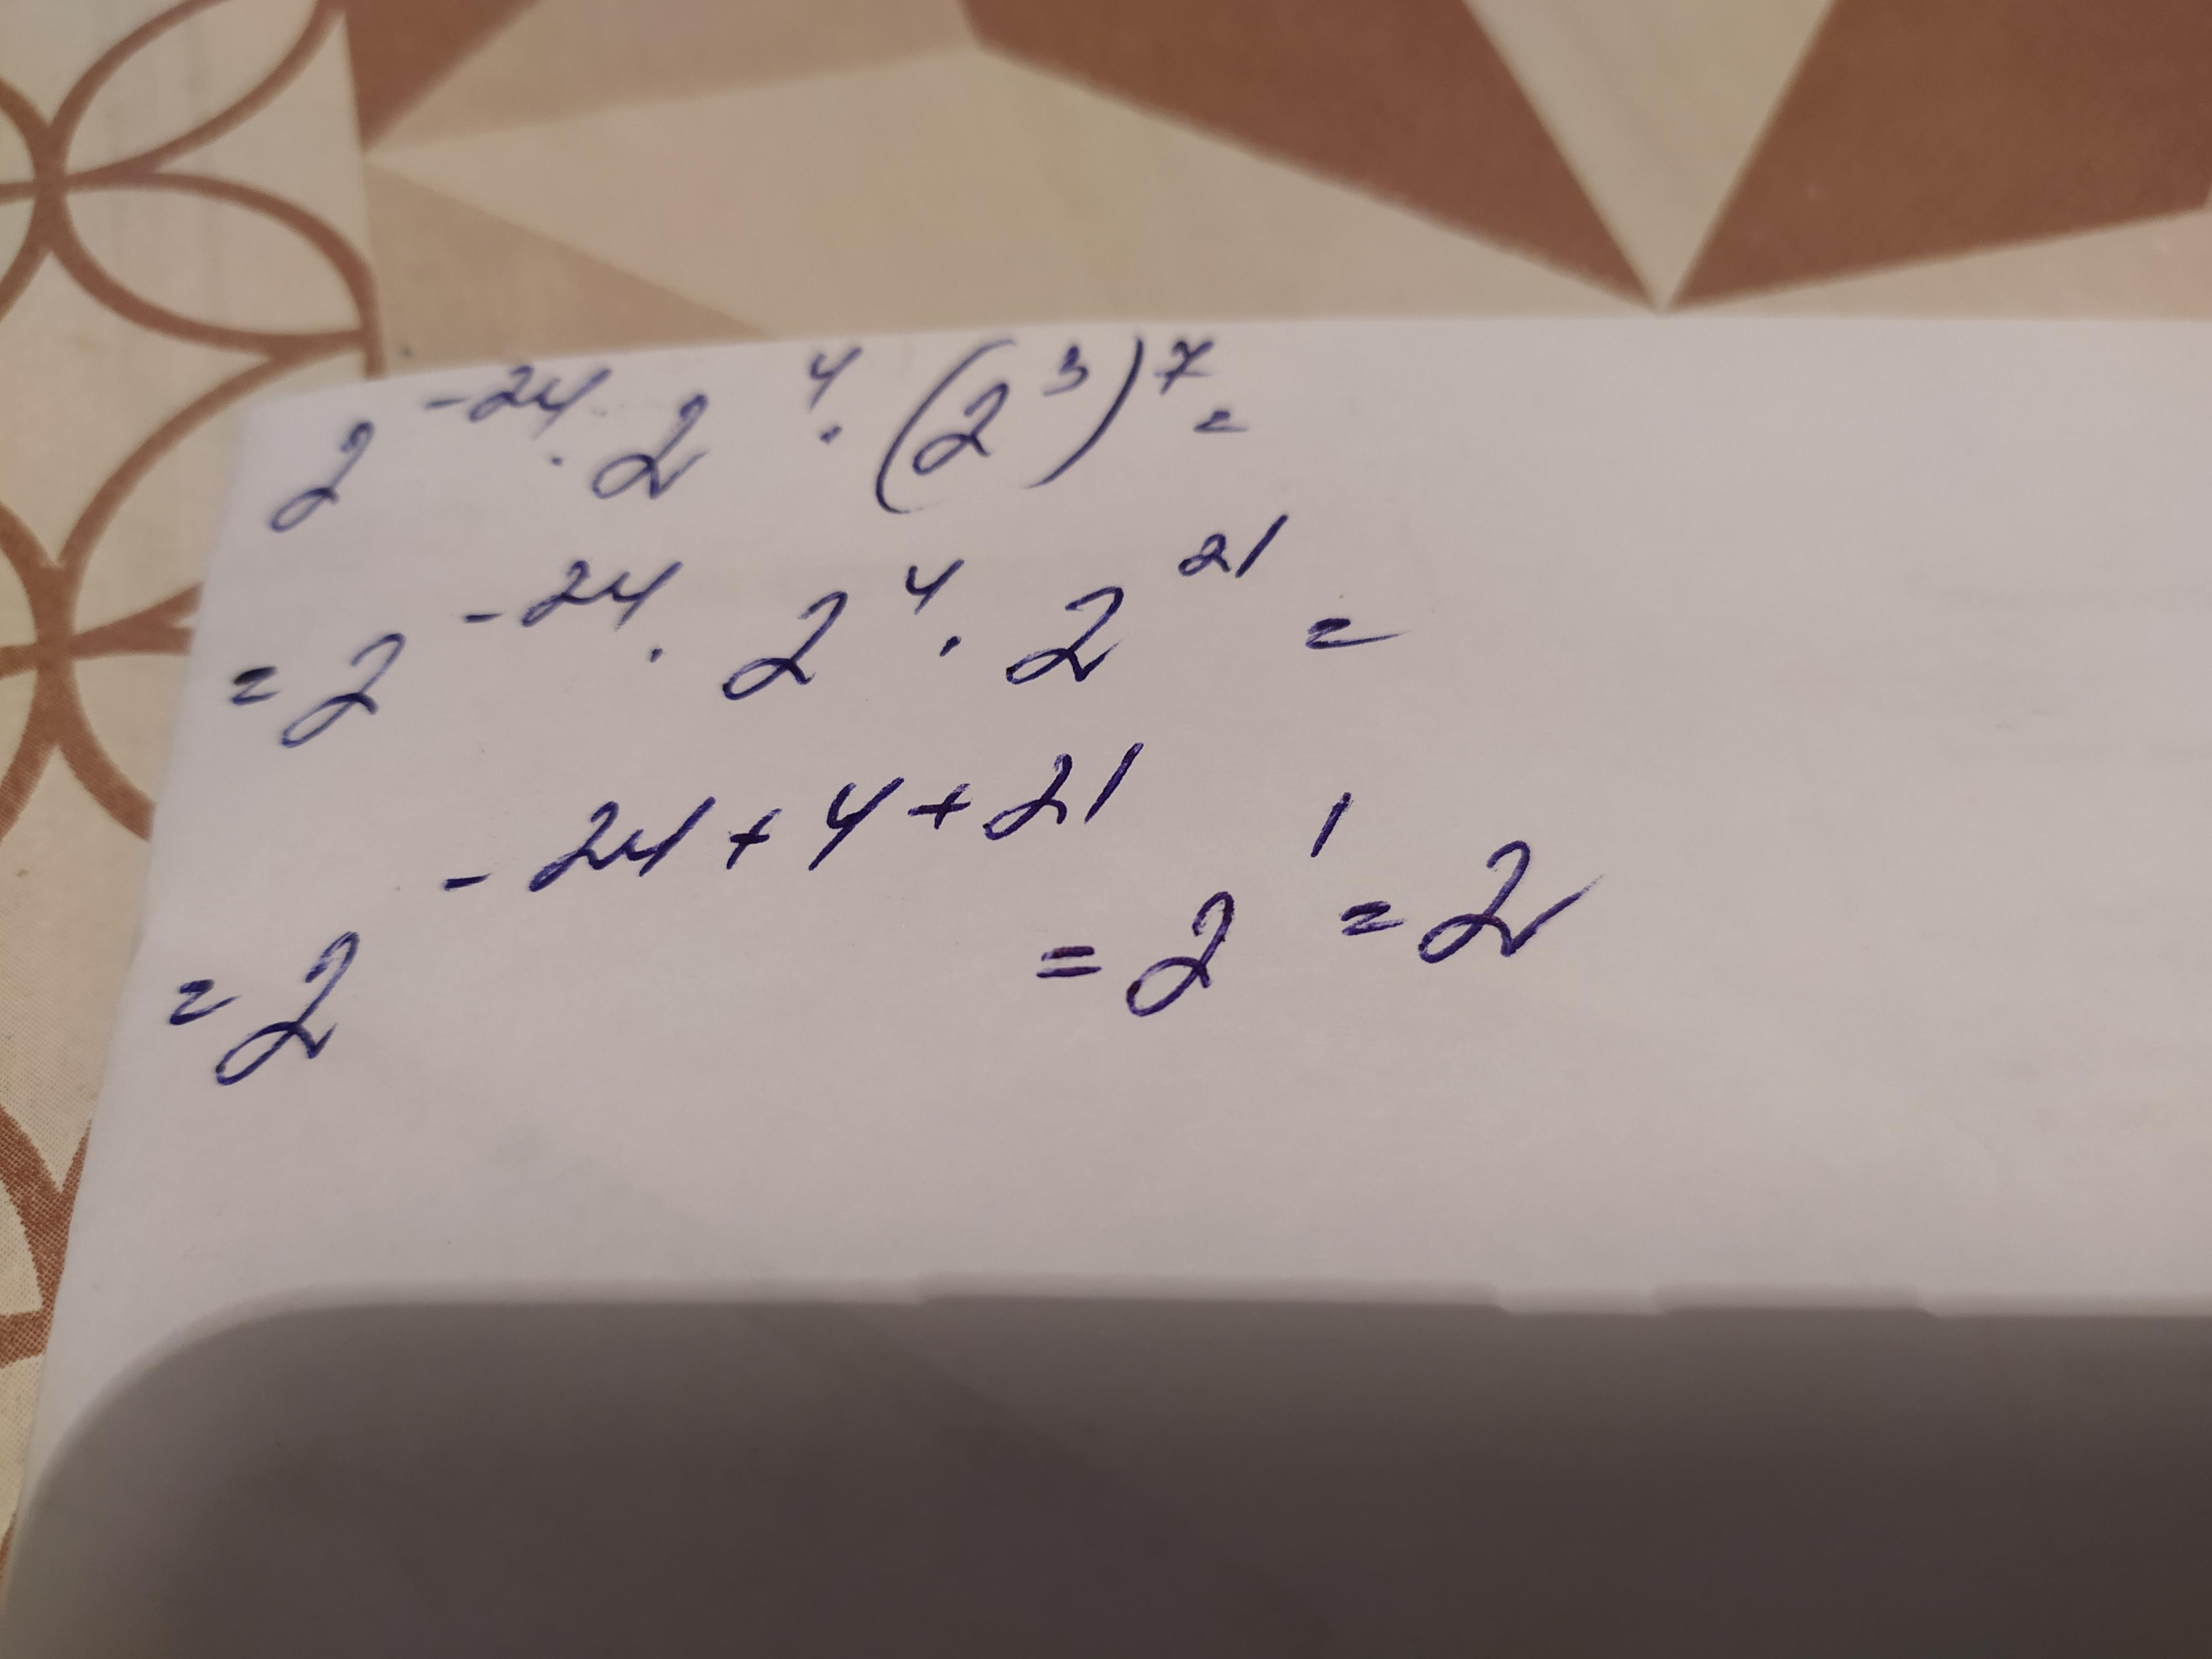 2⁻²⁴ · 2⁴ · (2³)⁷ =
= 2⁻²⁴ · 2⁴ · 2²¹ =
= 2⁻²⁴⁺⁴⁺²¹ = 2¹ = 2